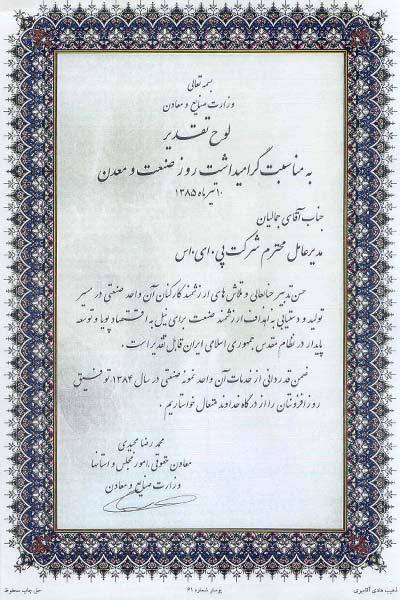 بسمه تعالی
وزارت صنایع و معادن
لوح تقدیر
به مناسبت گرامیداشت روز صنعت و معدن
۱۰ تیر ماه ۱۳۸۵
جناب آقای جمالیان
مدیر عامل محترم شرکت پی . ای . اس
حسن تدبیر جنابعالی و تلاش های ارزشمند کارکنان آن واحد صنعتی در مسیر
تولید و دستیابی به اهداف ارزشمند صنعت برای نیل به اقتصاد پویا و توسعه
پایدار در نظام مقدس جمهوری اسلامی ایران قابل تقدیر است .
ضمن قدردانی از خدمات آن واحد نمونه صنعتی در سال ۱۳۸۴ توفیق
روز افزونتان را از درگاه خداوند متعال خواستاریم .
محمد رضا مجیدی
معاون حقوقی ، امور مجلس و استانها
وزارت صنایع و معادن
تذهیب هادی آقامیری
پوستر شماره ۶۱
حق چاپ محفوظ